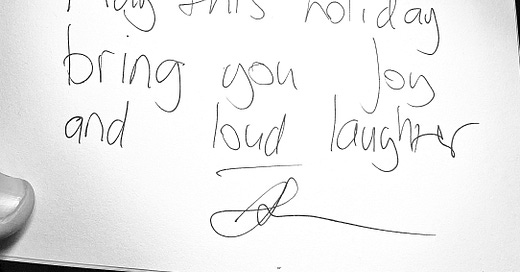 May this holiday
bring you joy
and loud laughter